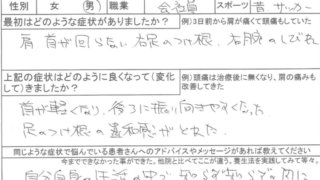 性別 女 男 職業 会社員 スポーツ 昔 サッカー
最初はどのような症状がありましたか？ 例)3日前から肩が痛くて頭痛もしていた
肩 首が回らない 右足のつけ根、右腕のしびれ
上記の症状はどのように良くなって(変化して)きましたか？ 例)頭痛は治療後に無くなり、肩の痛みも改善してきた
首が軽くなり、後ろに振り向きやすくなった
足のつけ根の違和感がとれた
同じような症状で悩んでいる患者さんへのアドバイスやメッセージがあれば教えてください
今までできなかった事ができた。他院と比べてここが違う。養生法を実践してみて等々。
自分自身の生活の中で 知らず知らず